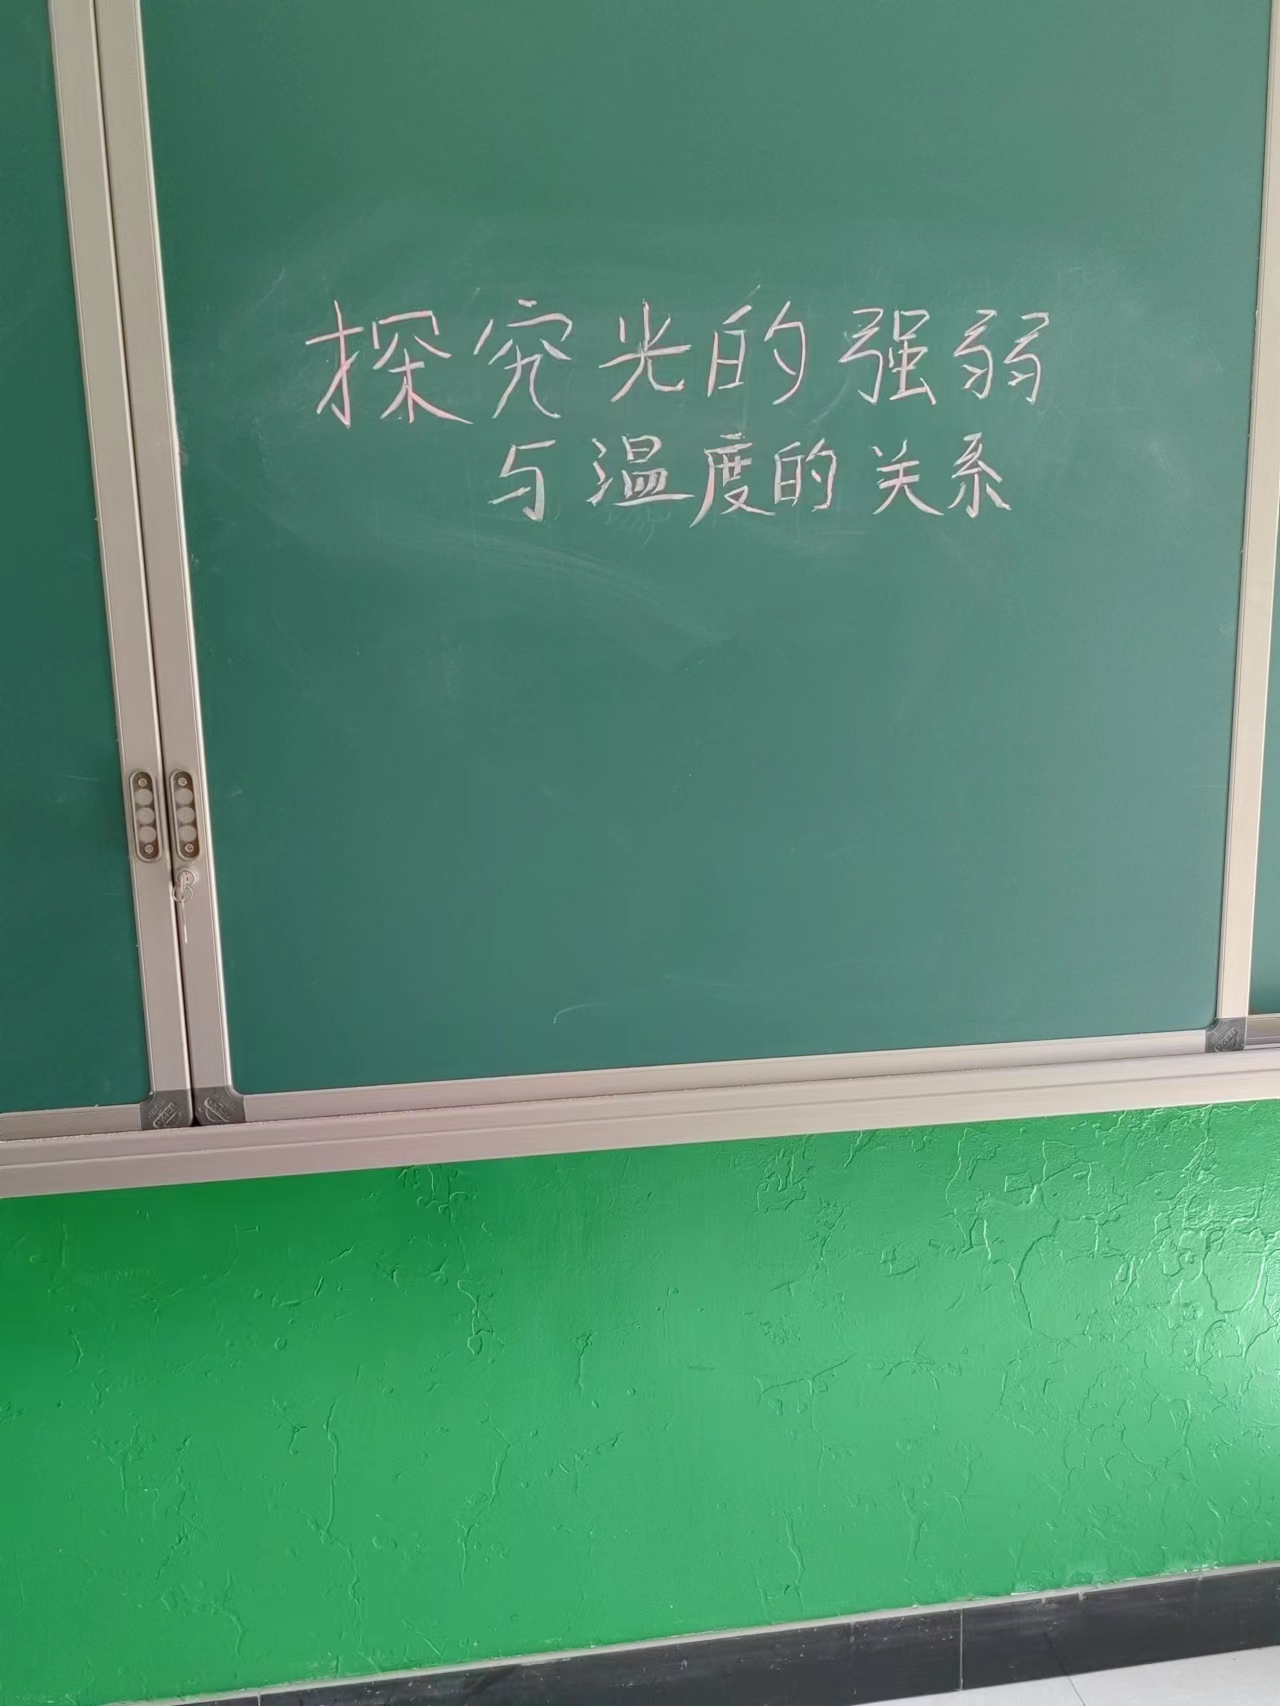 探究光的强弱
与温度的关系